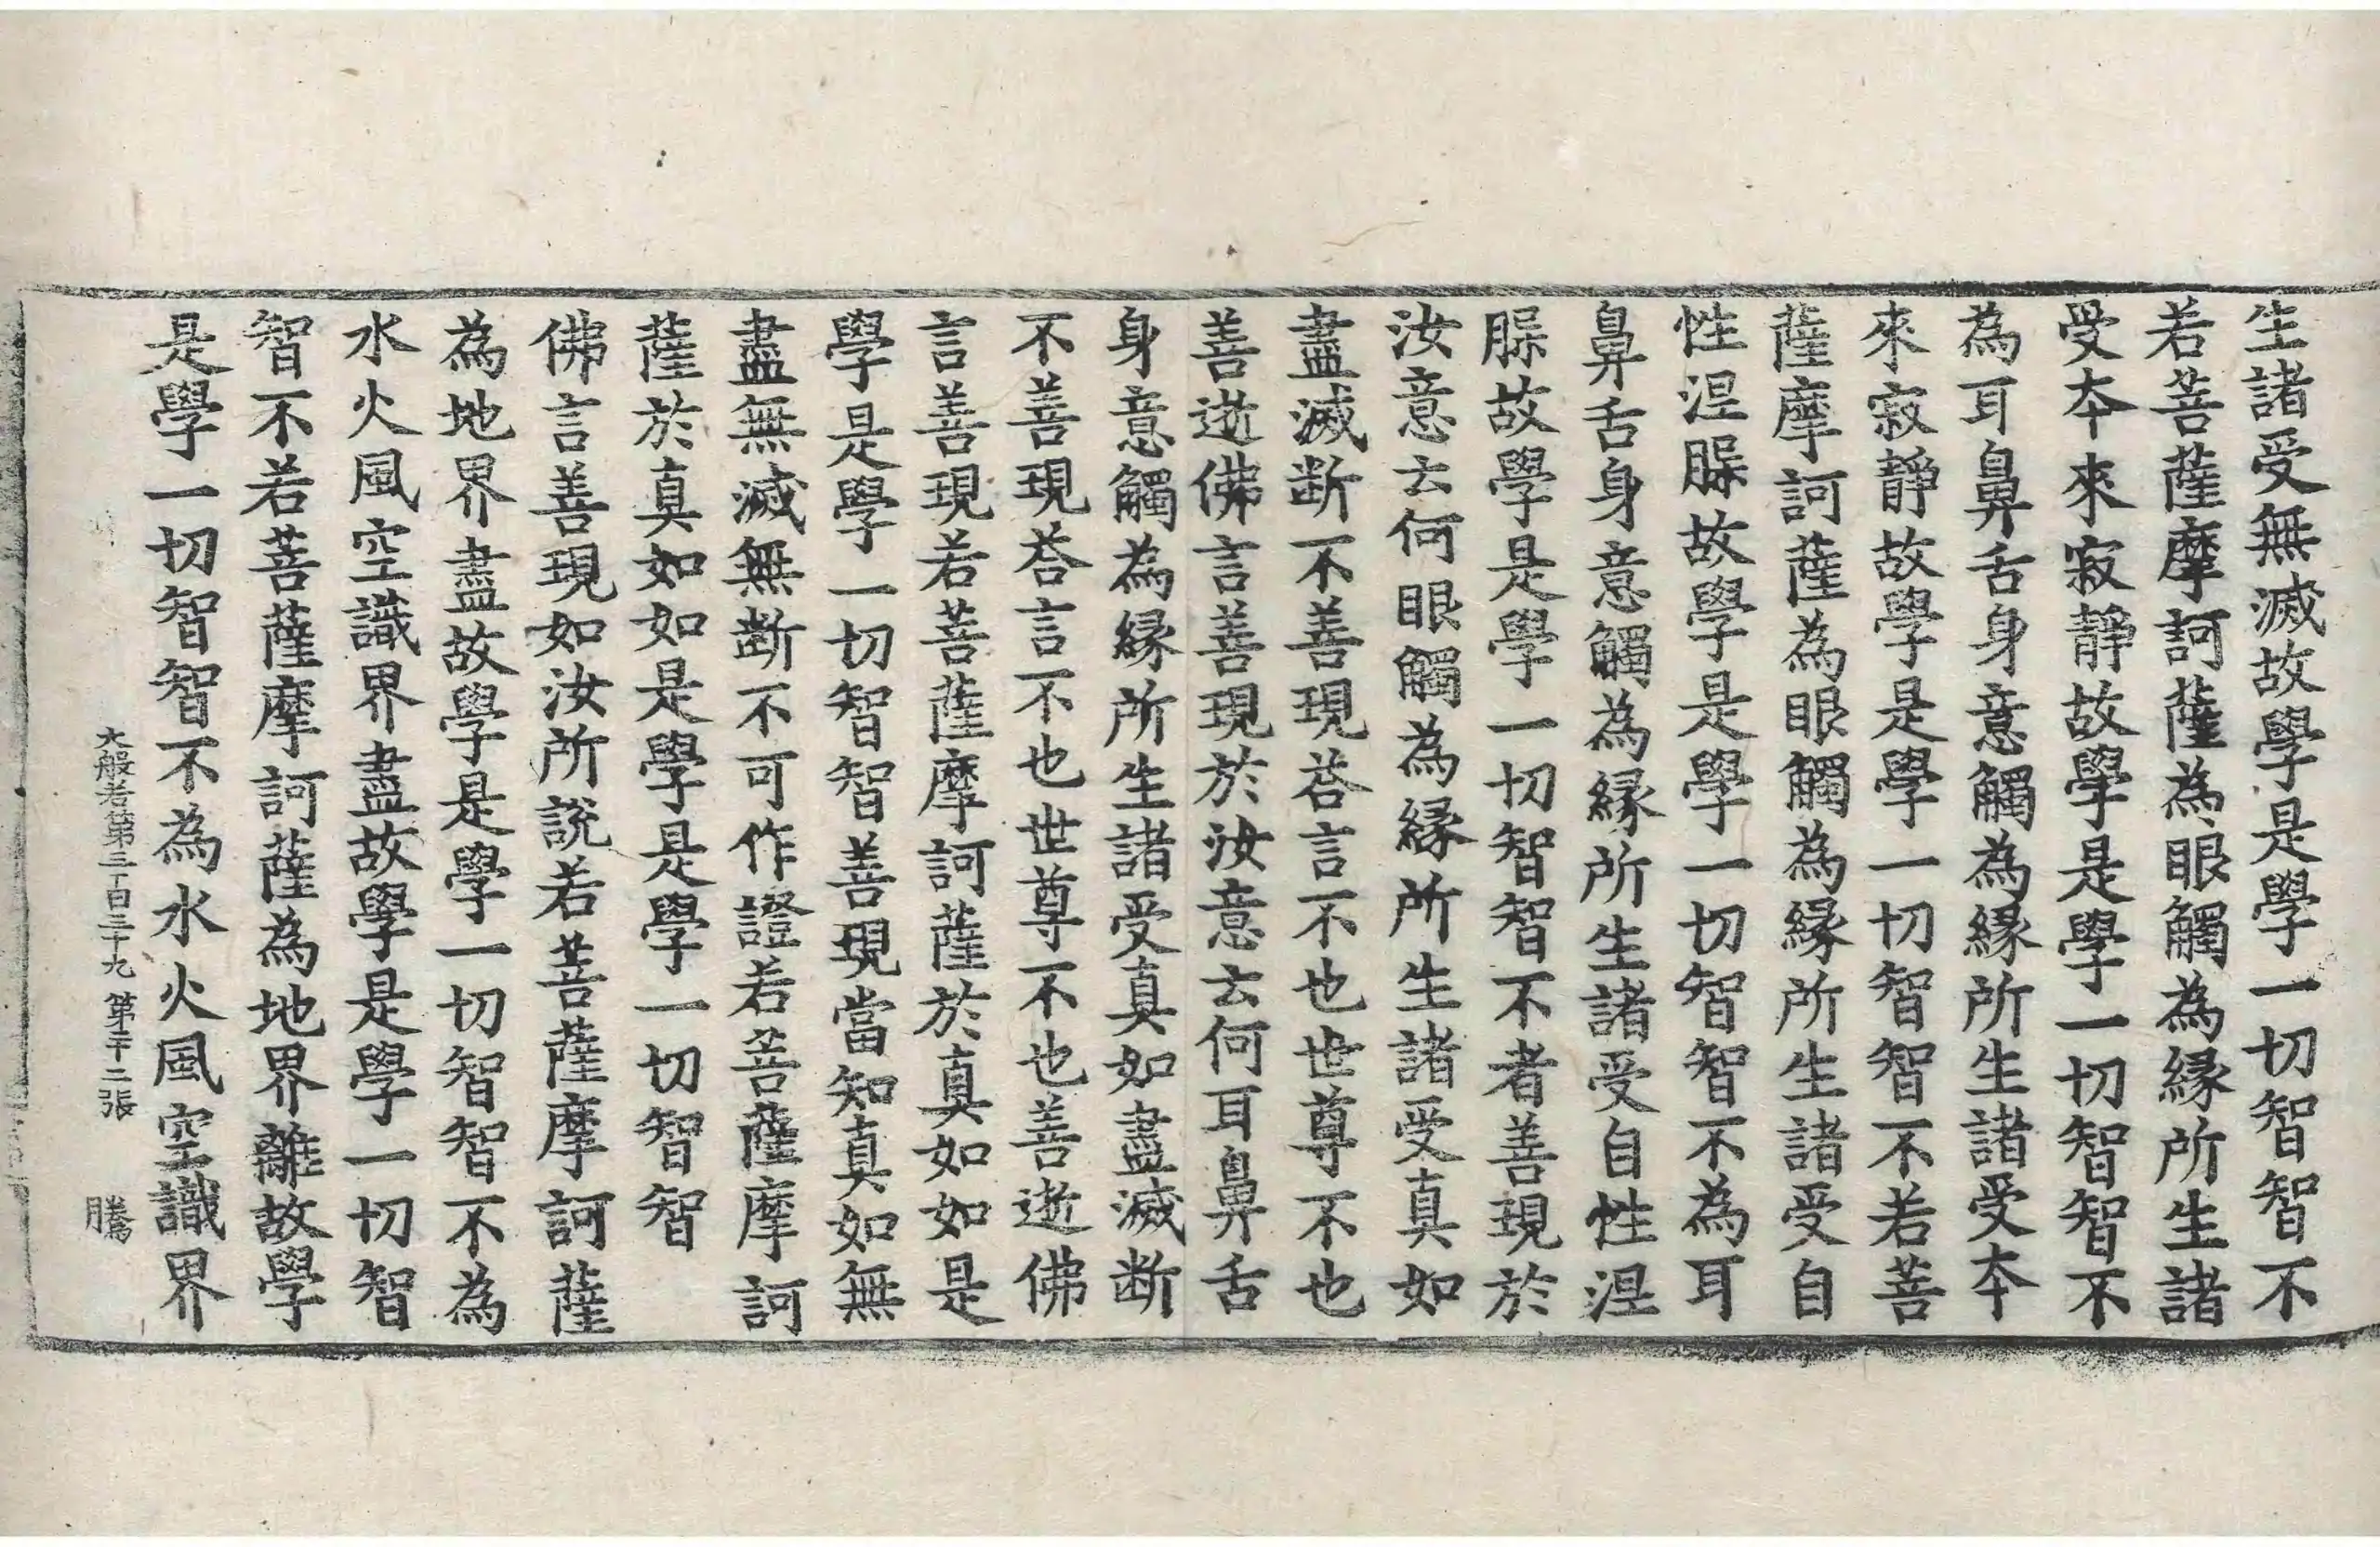 生諸受無滅故學是學一切智智不
若菩薩摩訶薩為眼觸為縁所生諸
受夲來寂靜故學是學一切智智不
為耳鼻舌身意觸為縁所生諸受夲
來寂靜故學是學一切智智不若菩
薩摩訶薩為眼觸為縁所生諸受自
性涅槃故學是學一切智智不為耳
鼻舌身意觸為縁所生諸受自性涅
槃故學是學一切智智不者善現於
汝意云何眼觸為縁所生諸受真如
盡滅断不善現荅言不也世尊不也
善逝佛言善現於汝意云何耳鼻舌
身意觸為縁所生諸受真如盡滅断
不善現荅言不也世尊不也善逝佛
言善現若菩薩摩訶薩於真如如是
學是學一切智智善現當知真如無
盡無滅無断不可作證若菩薩摩訶
薩於真如如是學是學一切智智
佛言善現如汝所說若菩薩摩訶薩
為地界盡故學是學一切智智不為
水火風空識界盡故學是學一切智
智不若菩薩摩訶薩為地界離故學
是學一切智智不為水火風空識界
大般若第三百三十九 第二十二張 騰